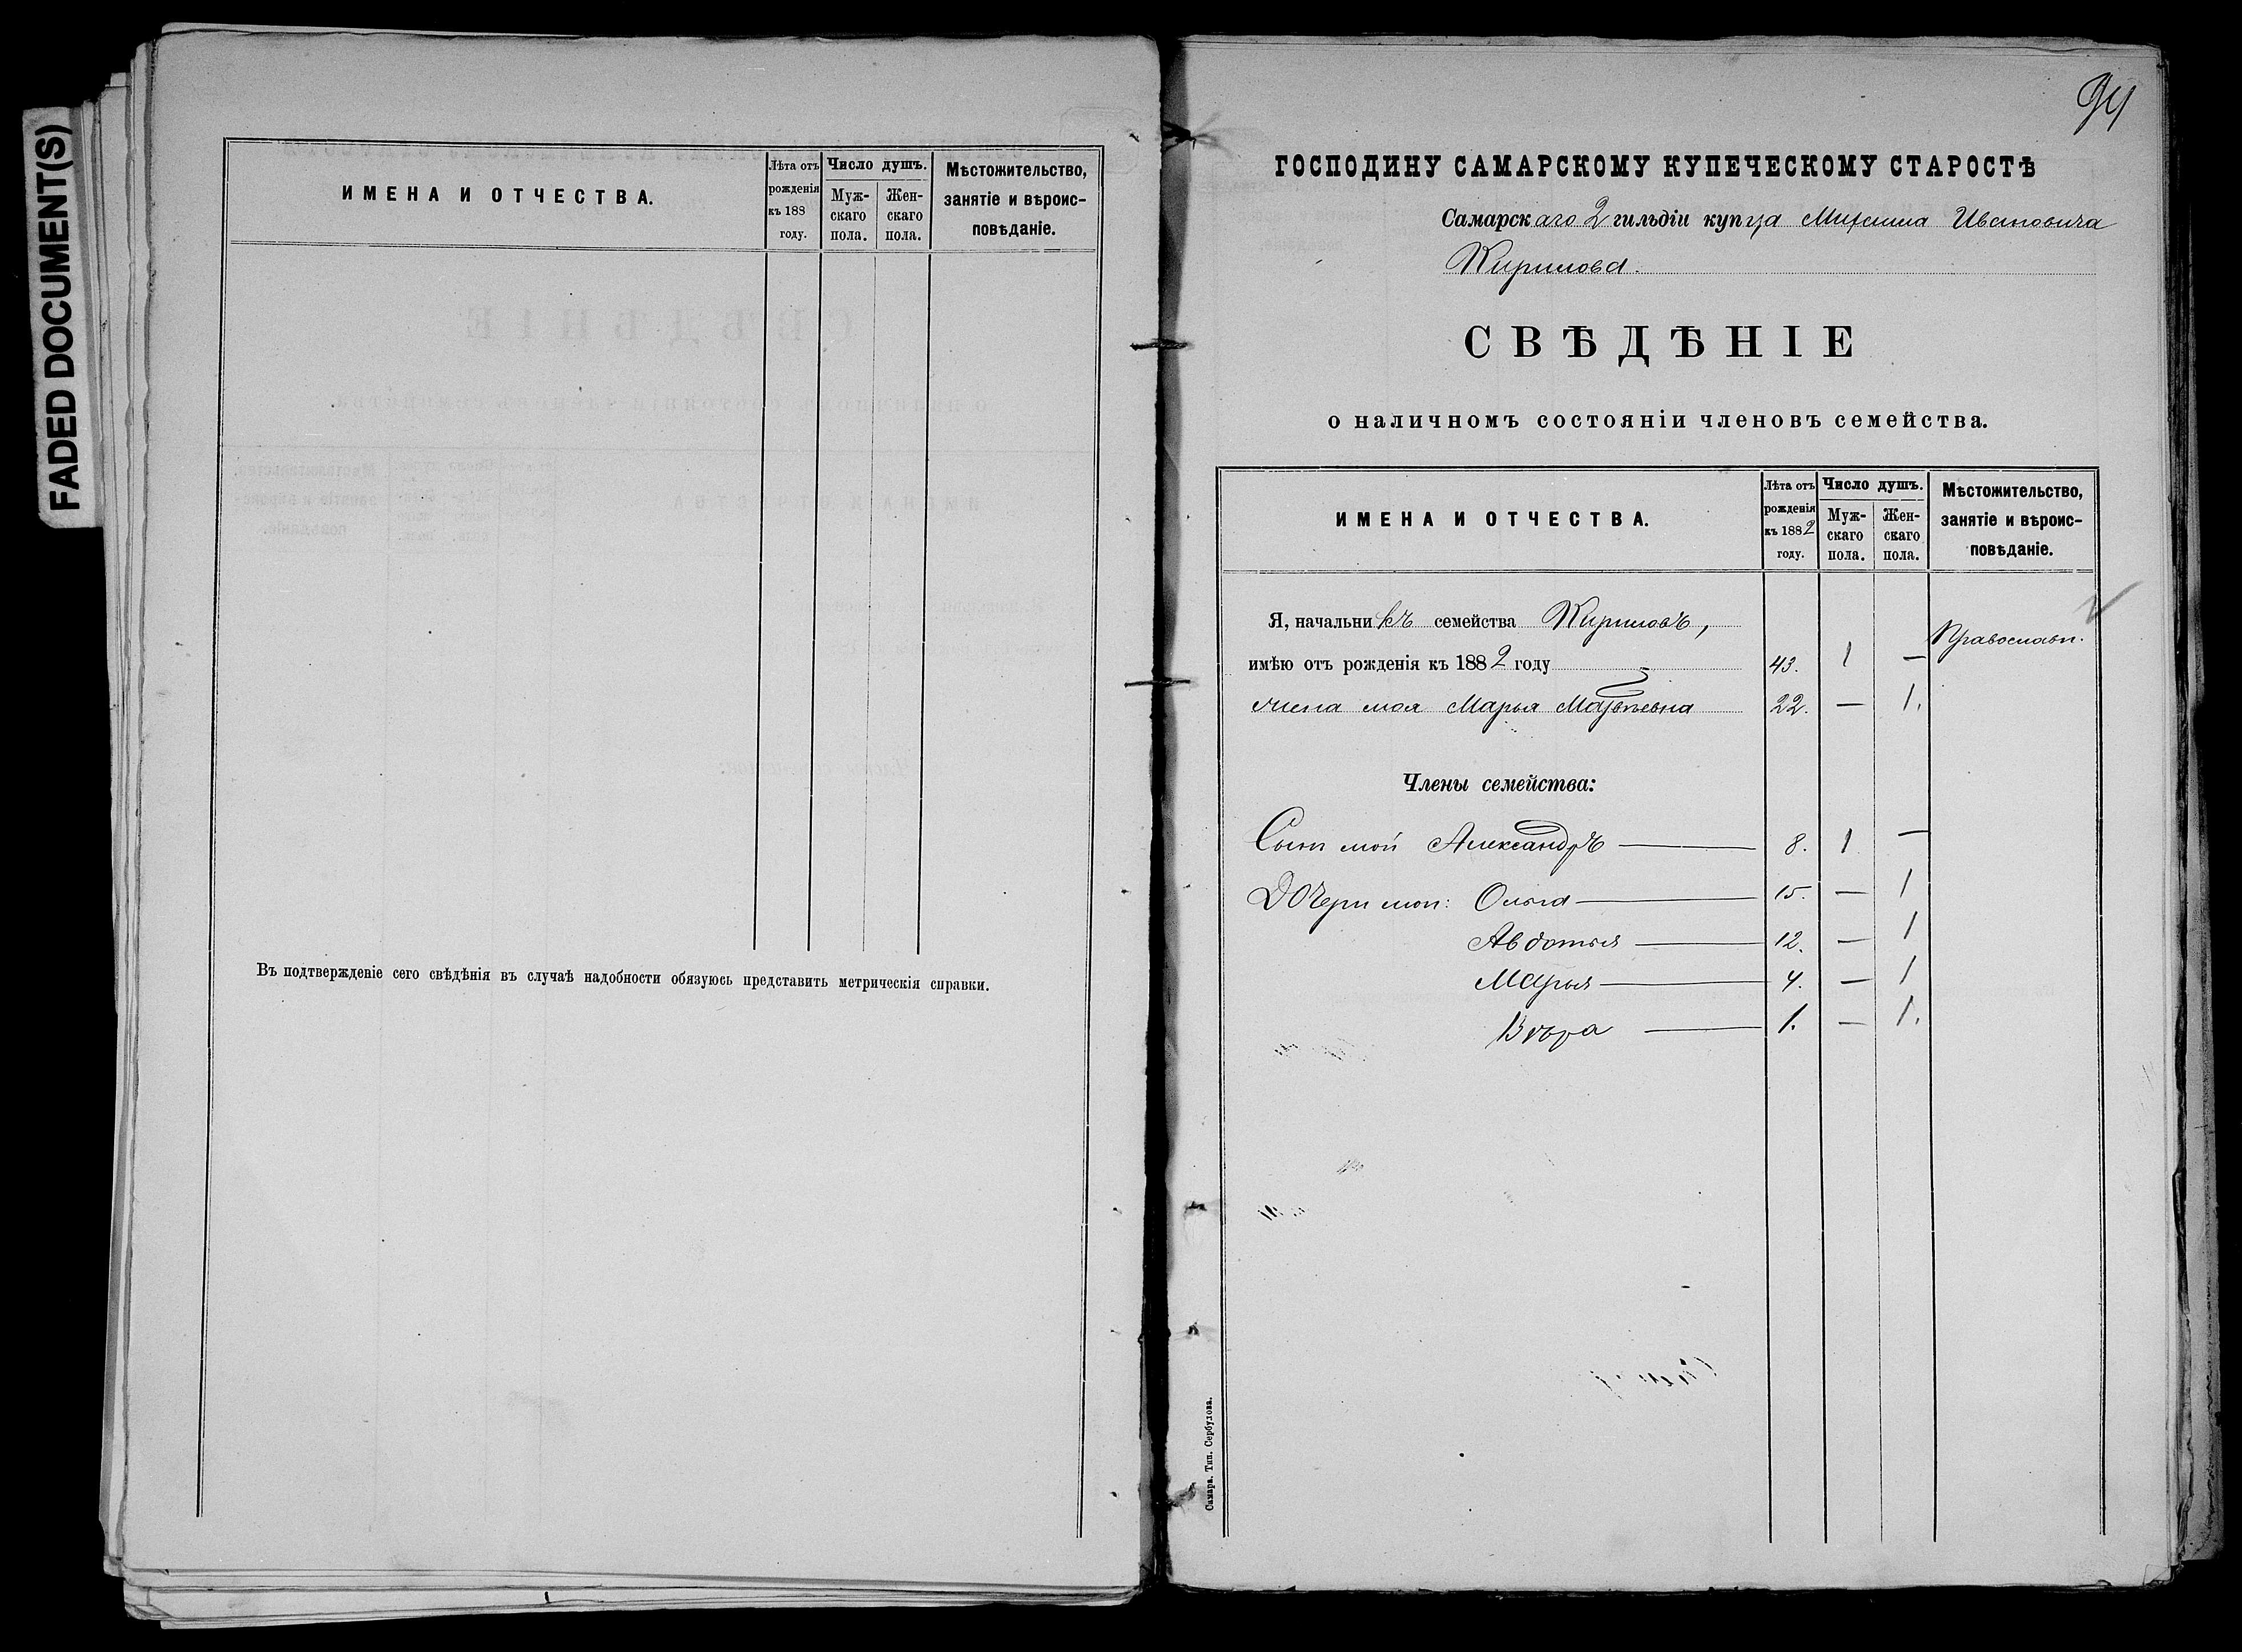 FADED DOCUMENT(S)
ИМЕНА И ОТЧЕСТВА.
Лѣта отъ рожденія къ 188 году.
Число душъ.
Мужскаго пола.
Женскаго пола.
Мѣстожительство, занятіе и вѣроисповѣданіе.
Въ подтвержденіе сего свѣдѣнія въ случаѣ надобности обязуюсь представить метрическія справки.
94
ГОСПОДИНУ САМАРСКОМУ КУПЕЧЕСКОМУ СТАРОСТѢ
Самарскаго 2 гильдіи купца Михаила Ивановича
Кирилова.
СВѢДѢНІЕ
о наличномъ состояніи членовъ семейства.
ИМЕНА И ОТЧЕСТВА.
Лѣта отъ рожденія къ 1882 году.
Число душъ.
Мужскаго пола.
Женскаго пола.
Мѣстожительство, занятіе и вѣроисповѣданіе.
Я, начальникъ семейства Кириловъ,
имѣю отъ рожденія къ 1882 году 43. 1 — Православн.
жена моя Марья Матвѣевна 22. — 1.
Члены семейства:
Сынъ мой Александръ — 8. 1 —
Дочери мои: Ольга — 15. — 1
Авдотья — 12. — 1
Марья — 4. — 1
Вѣра — 1. — 1.
Самара. Тип. Сербулова.